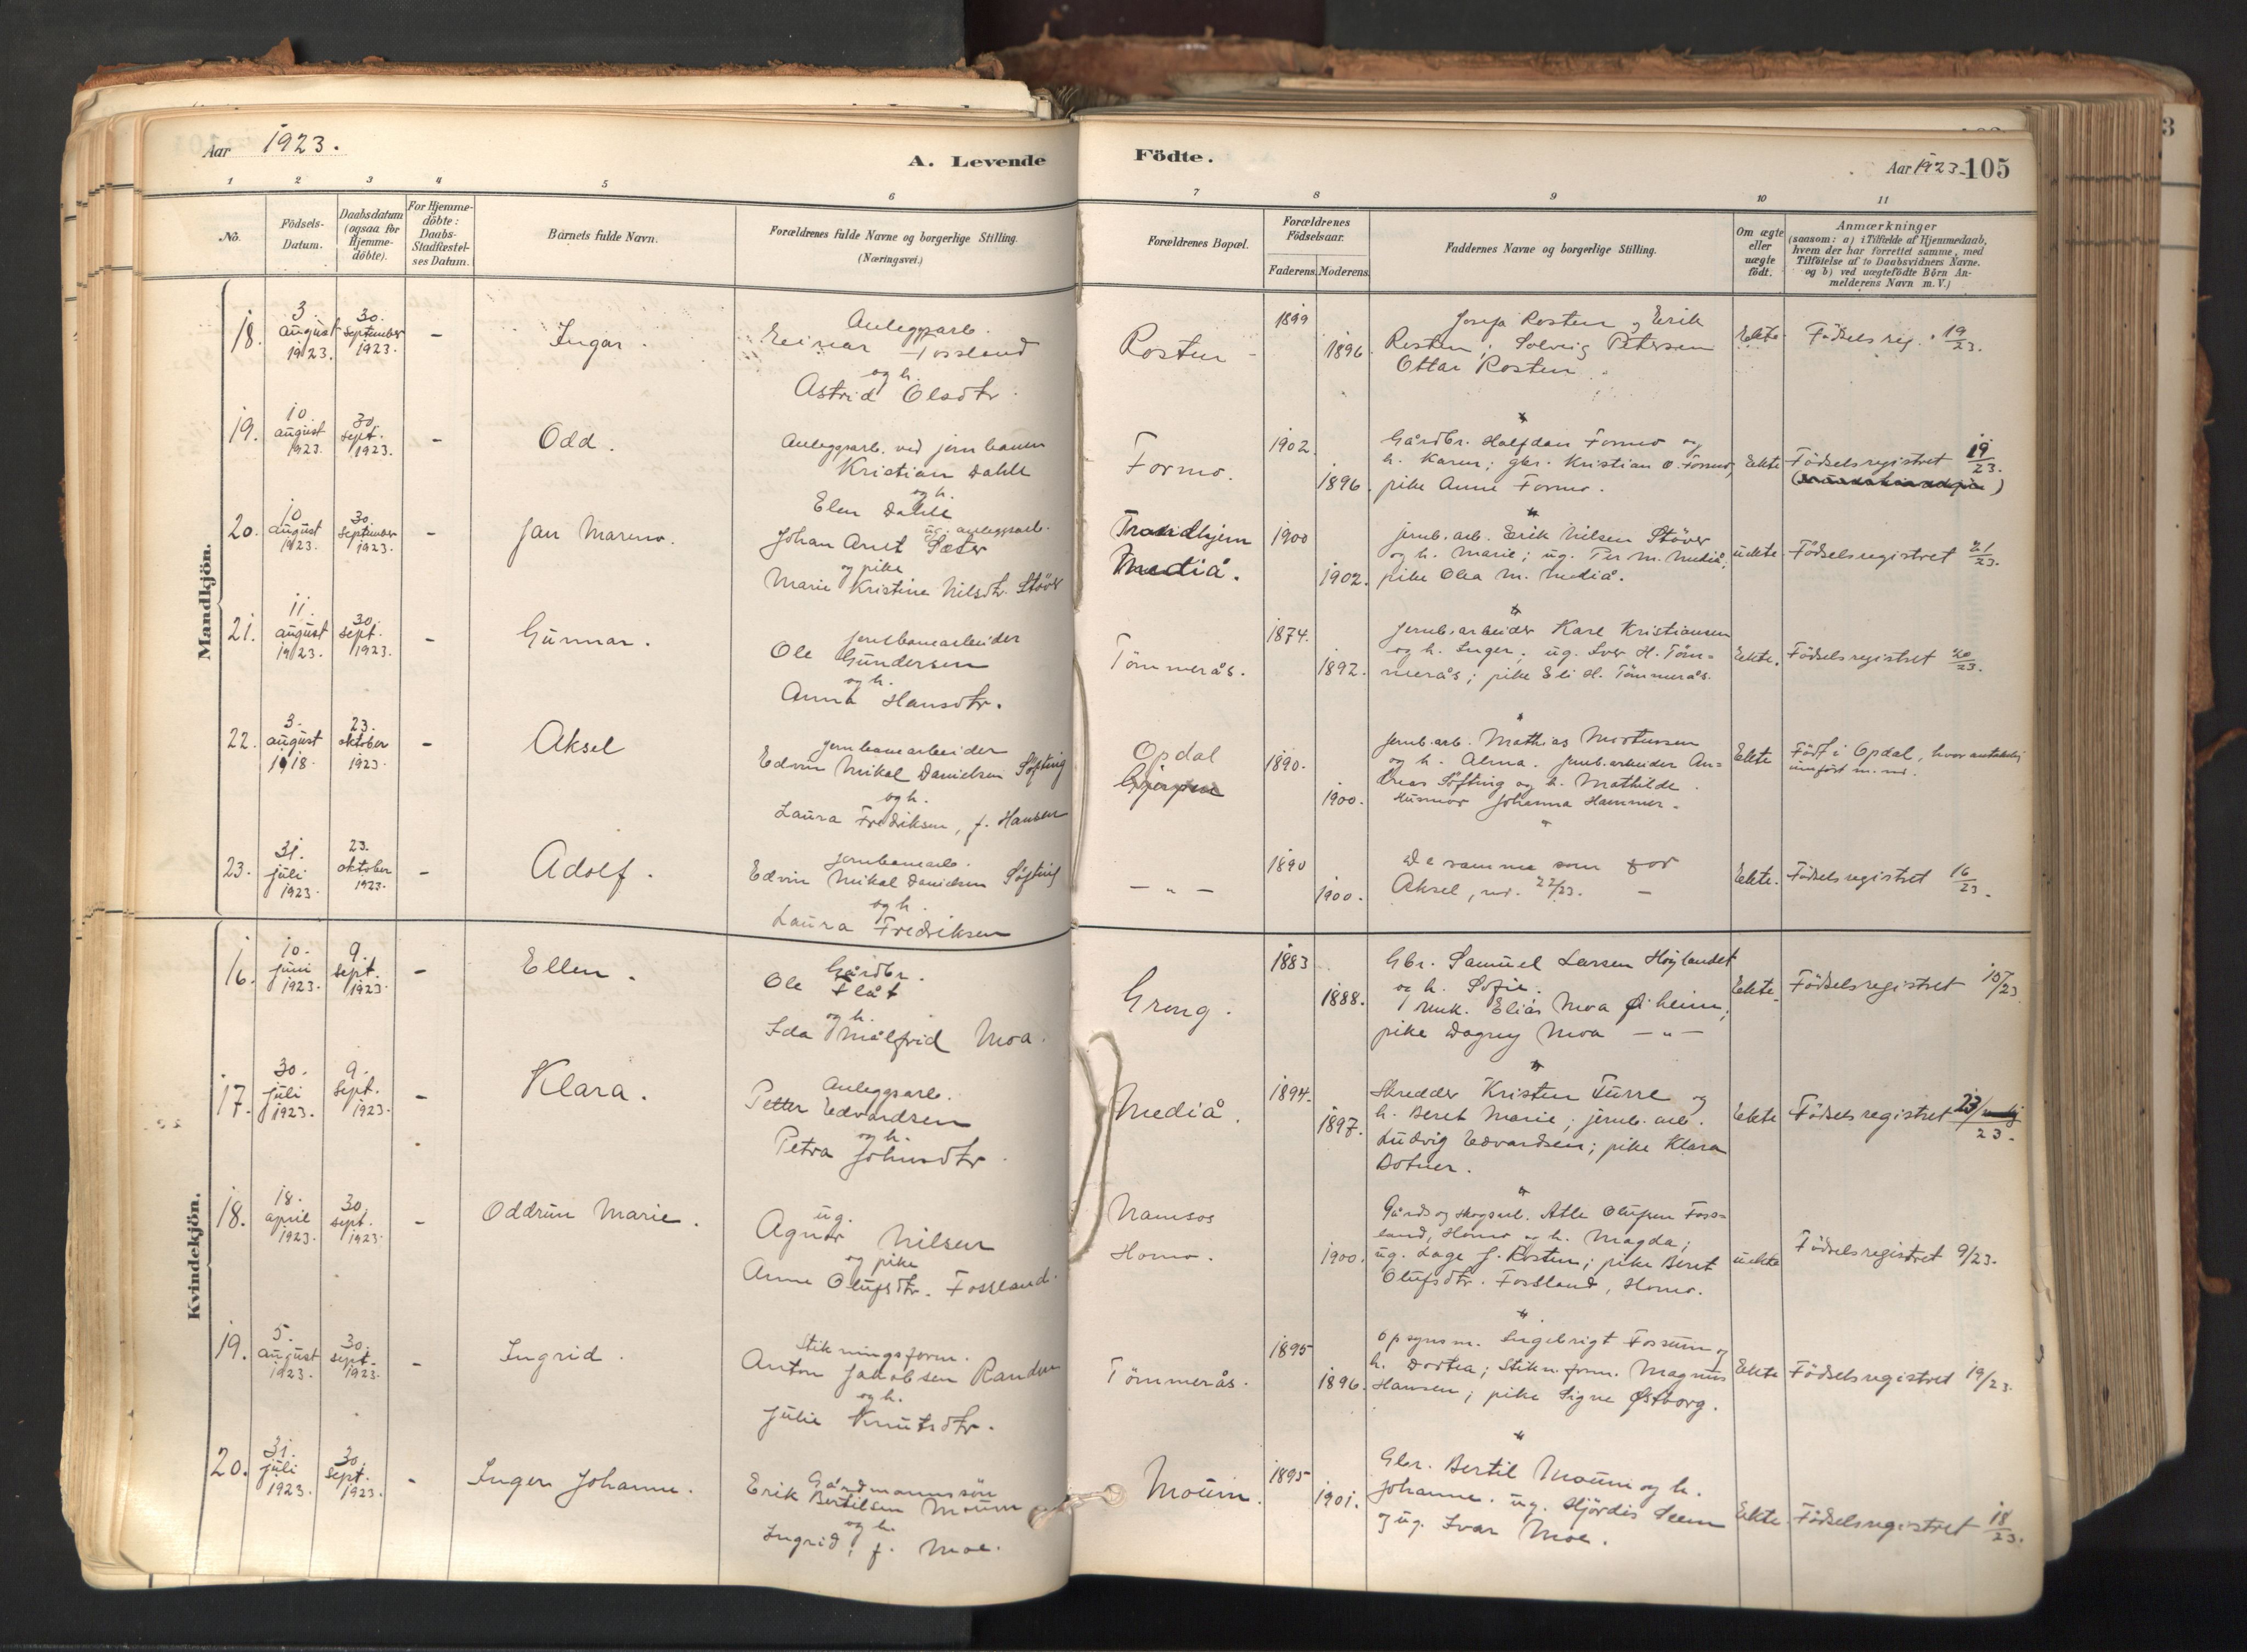 Aar 1923.
A. Levende Födte.
Aar 1923. 105
1 2 3 4 5 6 7 8 9 10 11
No.
Födsels-
Datum.
Daabsdatum
(ogsaa for
Hjemme-
döbte).
For Hjemme-
döbte:
Daabs-
Stadfæstel-
ses Datum.
Barnets fulde Navn.
Forældrenes fulde Navne og borgerlige Stilling.
(Næringsvei.)
Forældrenes Bopæl.
Forældrenes
Födselsaar.
Faderens. Moderens.
Faddernes Navne og borgerlige Stilling.
Om ægte
eller
uægte
födt.
Anmærkninger
(saasom: a) i Tilfælde af Hjemmedaab,
hvem der har forrettet samme, med
Tilföielse af to Daabsvidners Navne.
og b) ved uægtefödte Börn An-
melderens Navn m.V.)
Mandkjön.
18.
3.
august
1923.
30.
september
1923.
-
Ingar.
Anleggsarb.
Einar Fossland
og h.
Astrid Olsdtr.
Rosten -
1899
1896.
Josefa Rosten og Erik
Rosten; Solveig Petersen
Ottar Rosten.
Ekte.
Födsels reg. 19/23.
19.
10.
august
1923.
30.
sept.
1923.
-
Odd.
Anleggsarb. ved jernbanen
Kristian Dahle
og h.
Elen Dahle
Formo.
1902.
1896.
Gårdbr. Halfdan Formo og
h. Karen; gbr. Kristian O. Formo,
pike Anne Formo.
Ekte
Födselsregistret 19/23.
20.
10.
august
1923.
30.
september
1923.
-
Jan Mareno.
ug. anleggsarb.
Johan Arnt Sæter
og pike
Marie Kristine Nilsdtr. Stöver
Trondhjem
Mediå.
1900
1902.
jernb. arb. Erik Nilsen Stöver
og h. Marie; ug. Per M. Mediå,
pike Olea M. Mediå.
uekte
Födselsregistret 21/23.
21.
11.
august
1923.
30.
sept.
1923.
-
Gunnar.
jernbanearbeider
Ole Gundersen
og h.
Anna Hansdtr.
Tömmerås.
1874.
1892.
Jernb. arbeider Karl Kristiansen
og h. Inger; ug. Iver H. Töm-
merås; pike Eli H. Tömmerås.
Ekte.
Födselsregistret 20/23.
22.
3.
august
1918.
23.
oktober
1923.
-
Aksel
jernbanearbeider
Edvin Mikal Danielsen Söfting
og h.
Laura Fredriksen, f. Hansen
Opdal
1890.
1900.
Jernb. arb. Mathias Mortensen
og h. Alma. jernb. arbeider An-
dreas Söfting og h. Mathilde.
Husmor Johanna Hammer.
Ekte
Född i Opdal, hvor antakelig
innfört m. nr.
23.
31.
juli
1923.
23.
oktober
1923.
-
Adolf.
Jernbanearb.
Edvin Mikal Danielsen Söfting
og h.
Laura Fredriksen
— " —
1890
1900.
De samme som for
Aksel, nr. 22/23. —
Ekte.
Födselsregistret 16/23.
Kvindekjön.
16.
10.
juni
1923.
9.
sept.
1923.
-
Ellen.
Gårdbr.
Ole Flåt
og h.
Ida Målfrid Moa.
Grong.
1883
1888.
Gbr. Samuel Larsen Höylandet
og h. Sofie.
Elias Moa
pike Dagny Moa — " —
Ekte.
Födselsregistret 15/23
17.
30.
juli
1923.
9.
sept.
1923.
-
Klara.
Anleggsarb.
Petter Edvardsen
og h.
Petra Johnsdtr.
Mediå.
1894.
1897.
Skredder Kristen Turre og
h. Beret Marie; jernb. arb.
Ludvig Edvardsen; pike Klara
Botner.
Ekte
Födselsregistret 23/23.
18.
18.
april
1923.
30.
sept.
1923.
-
Oddrun Marie.
ug.
Agnar Nilsen
og pike
Anne Olufsdtr. Fossland.
Namsos
Homo.
1900.
Gårds og skogsarb. Atle Olufsen Foss-
land, Homo og h. Magda;
ug. Lage J. Rosten; pike Beret
Olufsdtr. Fossland, Homo.
uekte
Födselsregistret 9/23.
19.
5.
august
1923.
30.
sept.
1923.
-
Ingrid.
Stikningsform.
Anton Jakobsen Randem
og h.
Julie Knutsdtr.
Tömmerås.
1895
1896.
Opsynsm. Ingebrigt Fossum og
h. Dortea; Stikn. form. Magnus
Hansen; pike Signe Østborg.
Ekte
Födselsregistret 19/23.
20.
31.
juli
1923.
30.
sept.
1923.
-
Inger Johanne.
Gårdmannssön
Erik Bertilsen Moum
og h.
Ingrid, f. Moe.
Moum.
1895
1901.
Gbr. Bertil Moum og h.
Johanne. ug. Hjördis Seem
og ug. Ivar Moe.
Ekte.
Födselsregistret 18/23.